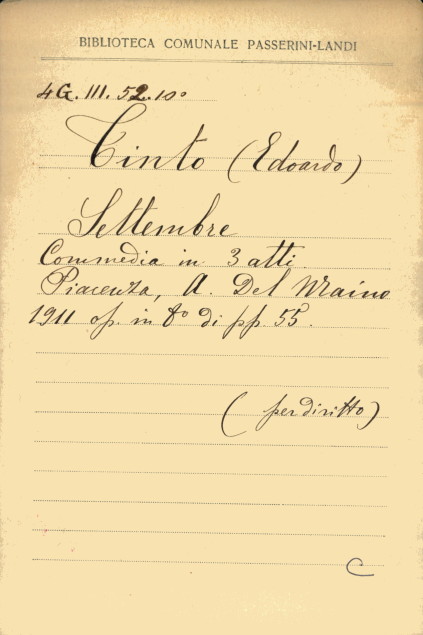 BIBLIOTECA COMUNALE PASSERINI-LANDI
4G. III. 52. 10º
Tinto (Edoardo)
Settembre
Commedia in 3 atti.
Piacenza, A. Del Maino
1911 op. in 8º di pp. 55.
(per diritto)
C